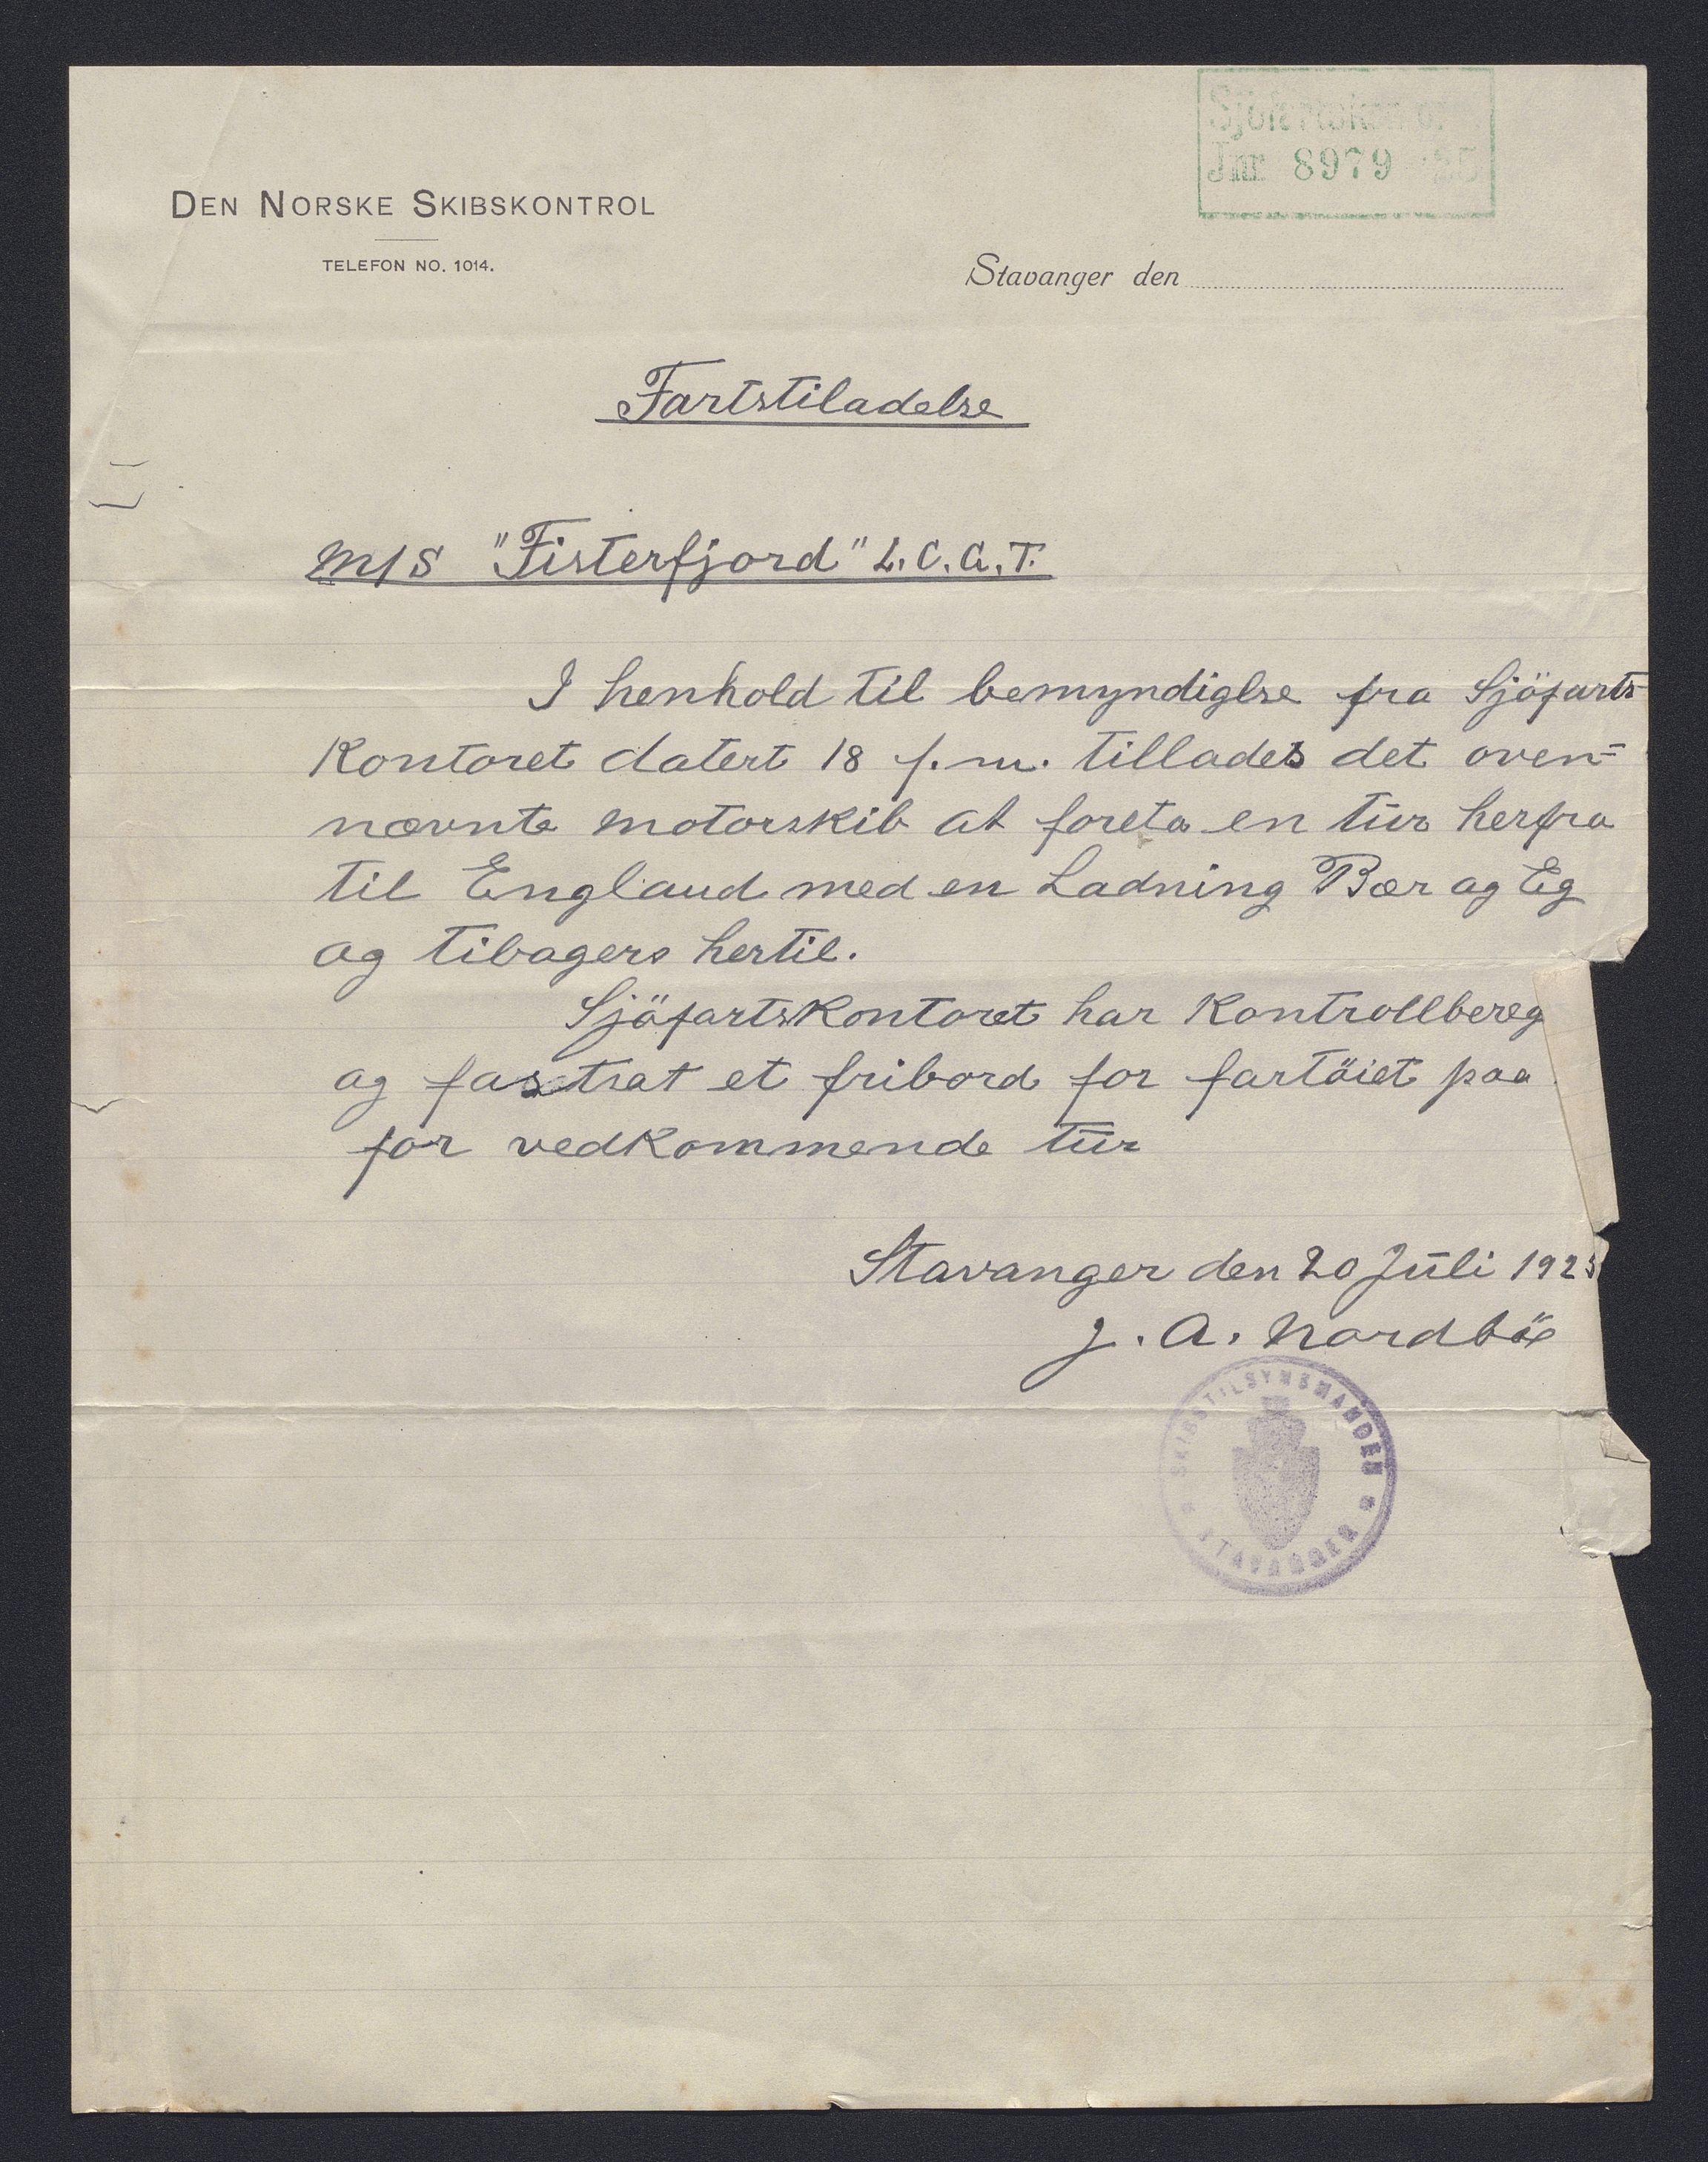 Sjöfartskontoret
Jnr 8979 25
DEN NORSKE SKIBSKONTROL
TELEFON NO. 1014.
Stavanger den
Fartstiladelse
M/S "Fisterfjord" L.C.G.T.
I henhold til bemyndiglse fra Sjöfarts-
kontoret datert 18 f.m. tillades det oven=
nævnte motorskib at foreta en tur herfra
til England med en Ladning Bær og Eg
og tibagers hertil.
Sjöfartskontoret har kontrollbereg
og fastsat et fribord for fartöiet paa
for vedkommende tur
Stavanger den 20 Juli 1925
J. A. Nordbö
SKIBSTILSYNSMANDEN
STAVANGER